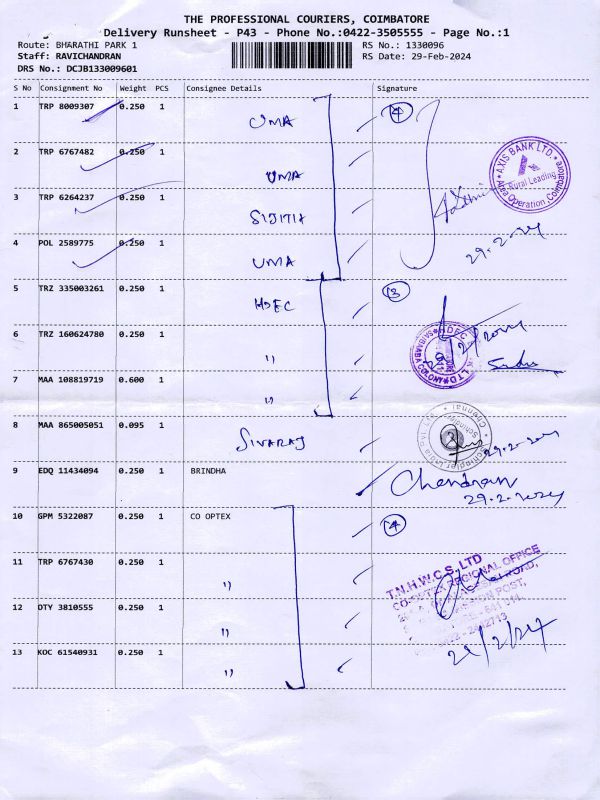 THE PROFESSIONAL COURIERS, COIMBATORE
Delivery Runsheet - P43 - Phone No.:0422-3505555 - Page No.:1
Route: BHARATHI PARK 1 RS No.: 1330096
Staff: RAVICHANDRAN RS Date: 29-Feb-2024
DRS No.: DCJB133009601
S No Consignment No Weight PCS Consignee Details Signature
1 TRP 8009307 0.250 1 UMA 4
2 TRP 6767482 0.250 1 UMA
AXIS BANK LTD.
Rural Lending
Area Operation, Coimbatore
3 TRP 6264237 0.250 1 SIJITIA
4 POL 2589775 0.250 1 UMA 29.2.24
5 TRZ 335003261 0.250 1 HDFC 3
6 TRZ 160624780 0.250 1 "
7 MAA 108819719 0.600 1 "
8 MAA 865005051 0.095 1 SIVARAJ 29.2.2024
9 EDQ 11434094 0.250 1 BRINDHA Chandran
29.2.2024
10 GPM 5322087 0.250 1 CO OPTEX 4
11 TRP 6767430 0.250 1 "
T.N.H.W.C.S. LTD
CO-OPTEX REGIONAL OFFICE
12 DTY 3810555 0.250 1 "
13 KOC 61540931 0.250 1 "
29/2/24